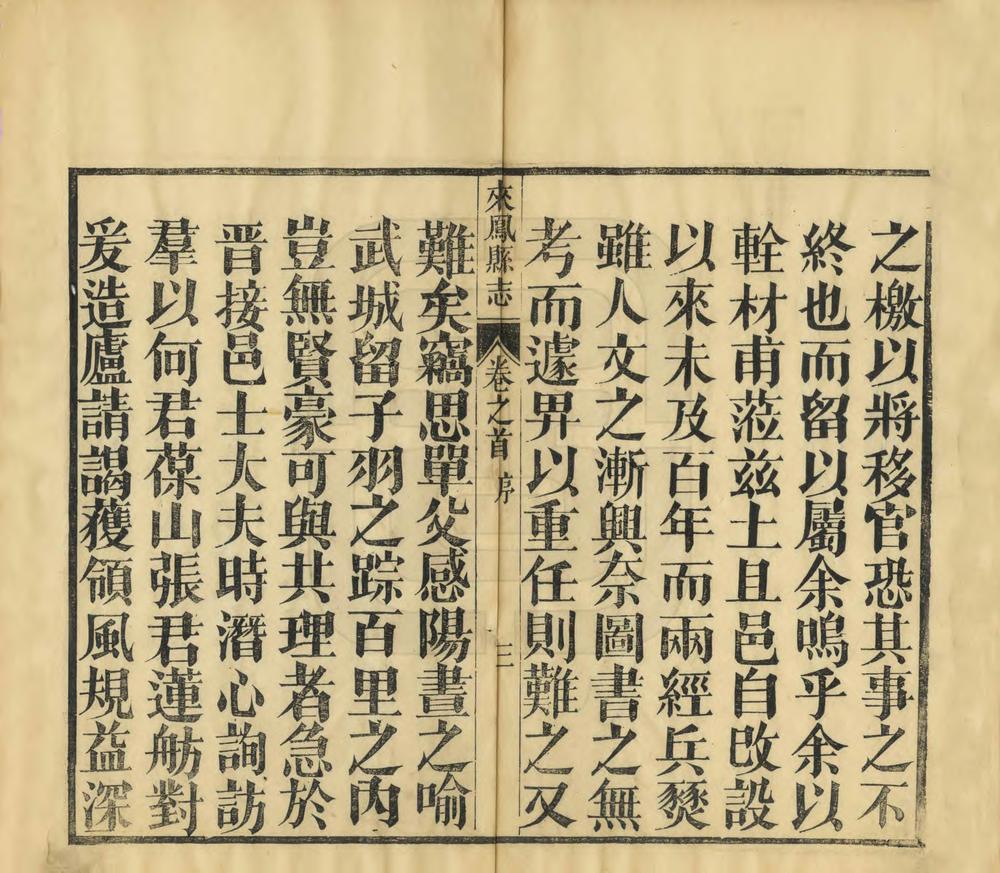 之檄以將移官恐其事之不
終也而留以屬余嗚乎余以
輇材甫蒞兹土且邑自改設
以來未及百年而兩經兵燹
雖人文之漸興奈圖書之無
考而遽畀以重任則難之又
來鳳縣志 卷之首 序 三
難矣竊思單父感陽晝之喻
武城留子羽之踪百里之內
豈無賢豪可與共理者急於
晋接邑士大夫時潛心詢訪
羣以何君葆山張君蓮舫對
爰造廬請謁獲領風規益深